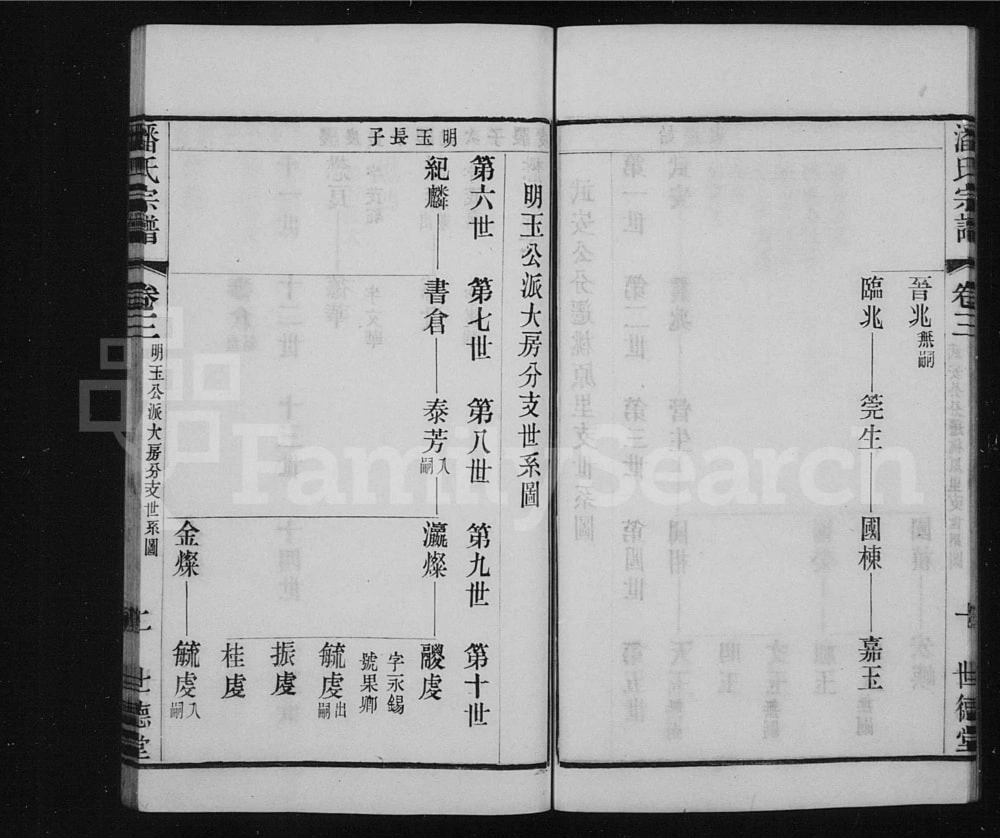 潘氏宗譜
卷三
世德堂
晉兆 無嗣
臨兆
筦生
國棟
嘉玉
明玉公派大房分支世系圖
第六世 第七世 第八世 第九世 第十世
明玉長子
紀麟
書倉
泰芳 入嗣
瀛燦
字永錫
號果卿
毓虔 出嗣
振虔
桂虔
金燦
毓虔 入嗣
潘氏宗譜
卷三
明玉公派大房分支世系圖
世德堂
FamilySearch